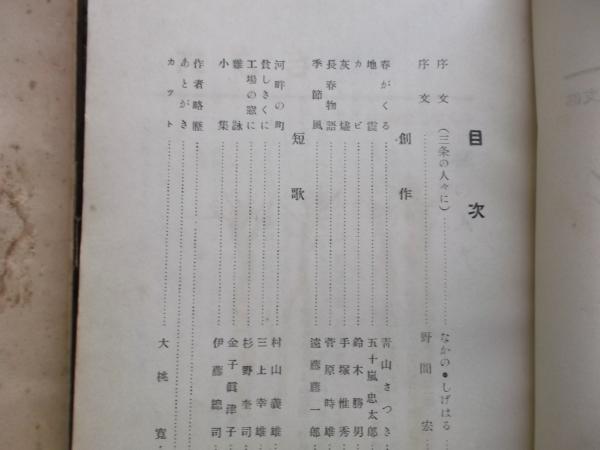 目次
序文(三条の人々に)……なかの・しげはる
序文……野間宏
創作
春がくる……青山さつき
地震……五十嵐忠太郎
カビ……鈴木勝男
灰燼……手塚惟秀
長春物語……菅原時雄
季節風……遠藤藤一郎
短歌
河畔の町……村山義雄
貧しきくに……三上幸雄
工場の窓に……杉野奎司
雜詠……金子眞津子
小集……伊藤總司
作者略歴……
あとがき……
カット……大桃寛